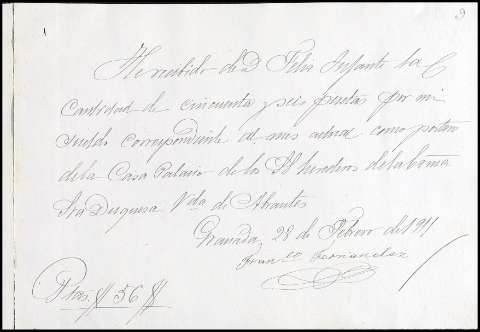 9
He recibido de D Felix Infante la C
Cantidad de cincuenta y seis pesetas por mi
sueldo correspondiente al mes actual como portero
de la Casa Palacio de los Sres herederos de la Exma
Sra Duquesa Vda de Abrantes
Granada, 28 de Febrero de 1911
Franco Fernandez
Ptas. # 56 #